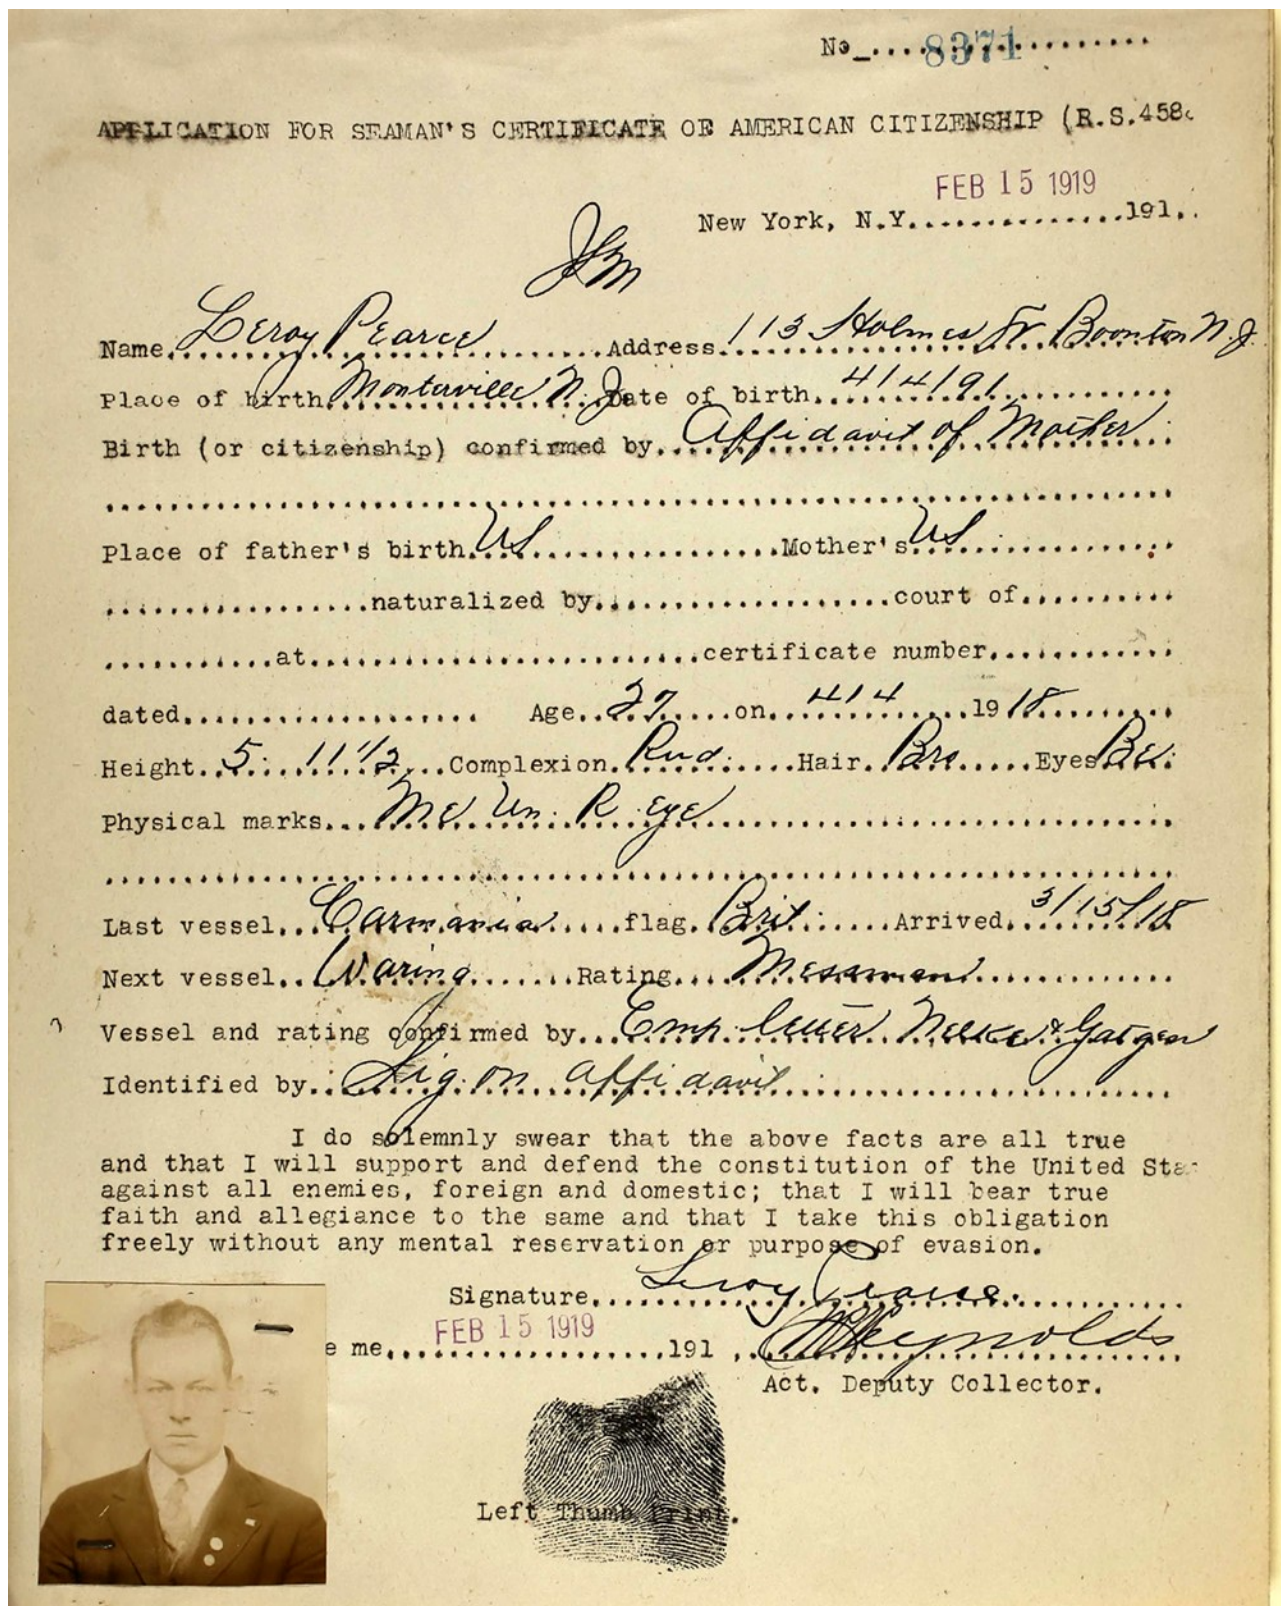 No_ 8371
APPLICATION FOR SEAMAN'S CERTIFICATE OF AMERICAN CITIZENSHIP (R.S.458
FEB 15 1919
New York, N.Y. 191
Name Leroy Pearce Address 113 Holmes St. Boonton N.J.
Place of birth Monterville N.J. Date of birth 4/4/91
Birth (or citizenship) confirmed by Affidavit of Mother
Place of father's birth US Mother's US
naturalized by court of
at certificate number
dated Age 27 on 4/4 1918
Height 5 11 1/2 Complexion Rud Hair Bro Eyes
Physical marks R. eye
Last vessel Carmania flag Brit Arrived 3/15/18
Next vessel Waring Rating Messman
Vessel and rating confirmed by Emp. letter &
Identified by Sig. on affidavit
I do solemnly swear that the above facts are all true
and that I will support and defend the constitution of the United Sta
against all enemies, foreign and domestic; that I will bear true
faith and allegiance to the same and that I take this obligation
freely without any mental reservation or purpose of evasion.
Signature Leroy Pearce.
FEB 15 1919
e me 191 , Reynolds
Act. Deputy Collector.
Left Thumb Print.